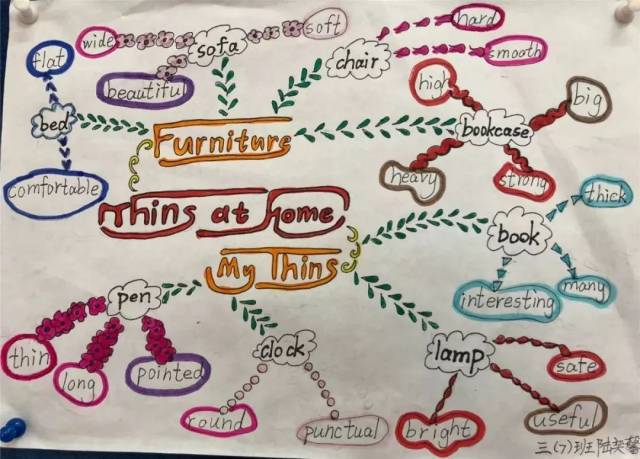 wide
soft
hard
flat
sofa
chair
smooth
beautiful
high
big
bed
Furniture
bookcase
comfortable
heavy
strong
Thins at Home
thick
book
My Thins
pen
interesting
many
thin
long
pointed
clock
lamp
safe
round
punctual
bright
useful
三(7)班陆奕馨